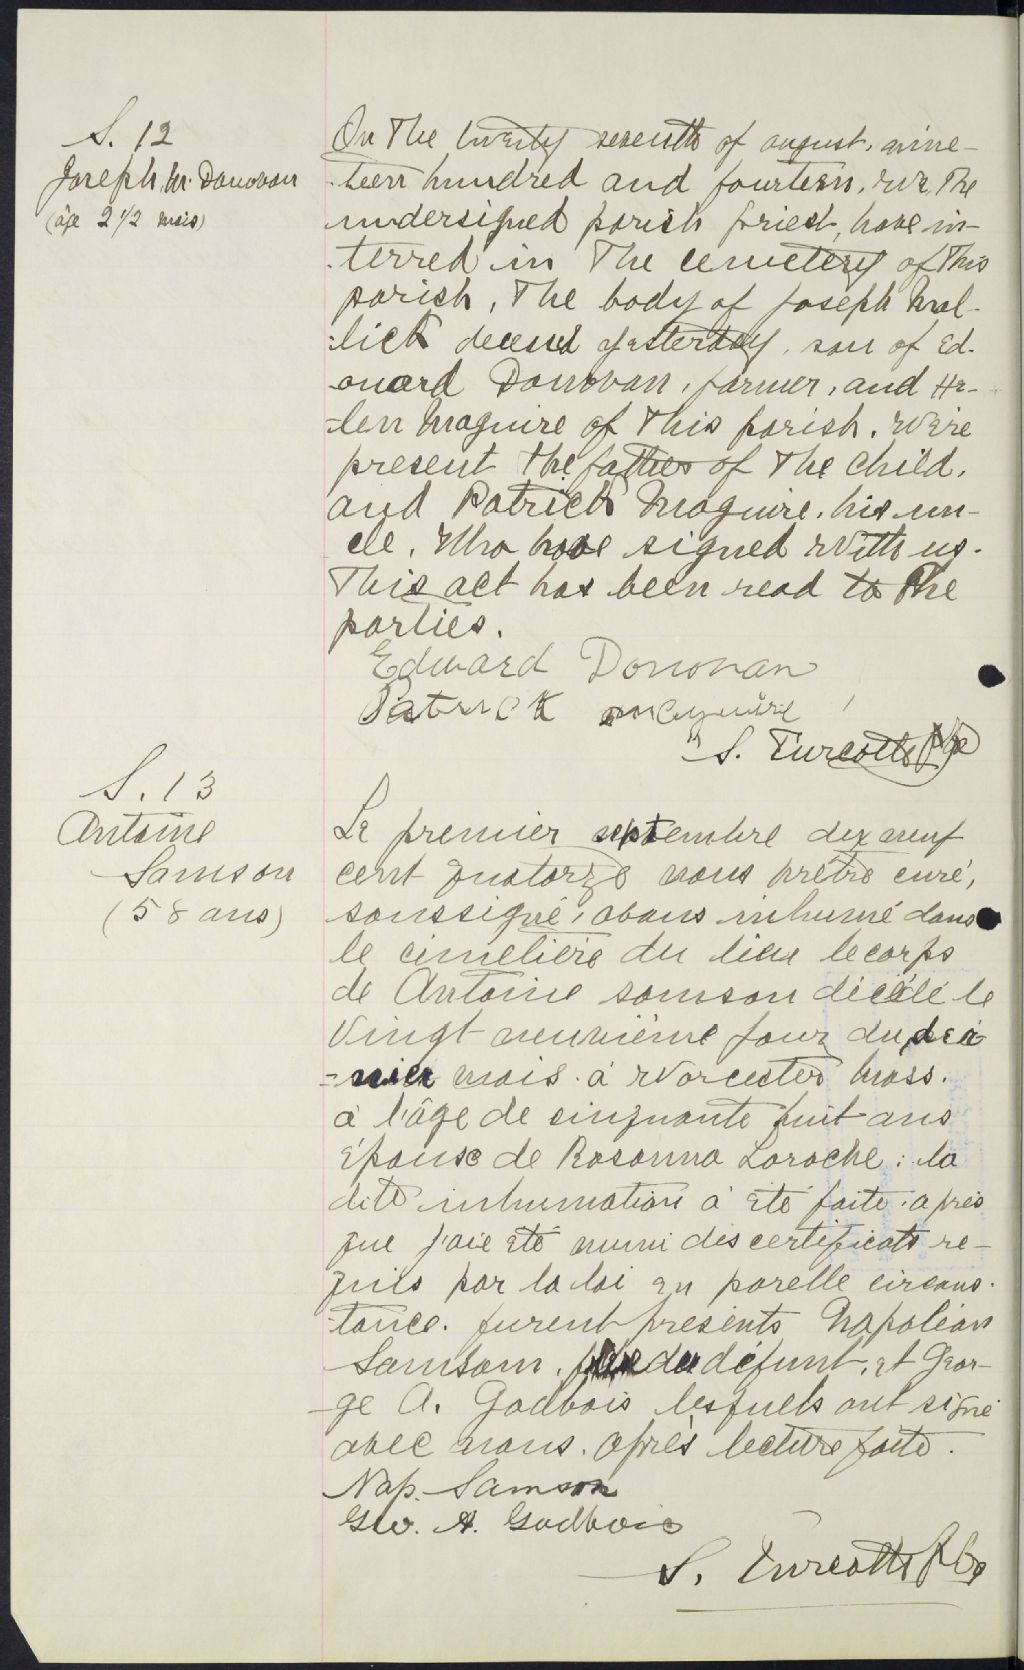 S. 12
Joseph M. Donovan
(âge 2 1/2 mois)
On The twenty seventh of august, nine-
teen hundred and fourteen, we, The
undersigned parish priest, have in-
terred in The cemetery of This
parish, The body of Joseph Mal-
lick deceased yesterday, son of Ed-
ouard Donovan, farmer, and He-
len Maguire of This parish. Were
present the father of The child,
and Patrick Maguire, his un-
cle, Who have signed With us.
This act has been read to The
parties.
Edward Donovan
Patrick Maguire
S. Turcotte Ptre
S. 13
Antoine
Samson
(58 ans)
Le premier septembre dix neuf
cent quatorze nous prêtre curé,
soussigné, avons inhumé dans
le cimetière du lieu le corps
de Antoine Samson décédé le
vingt neuvième jour du der-
nier mois à Worcester Mass.
à l'âge de cinquante huit ans
Epouse de Rosanna Laroche: la
dite inhumation à été faite après
que j'aie été muni des certificats re-
quis par la loi en parelle circons-
tance. furent présents Napoléon
Samson, du défunt, et Geor-
ge A. Godbois lesquels ont signé
avec nous. après lecture faite.
Nap. Samson
Geo. A. Godbois
S. Turcotte Ptre